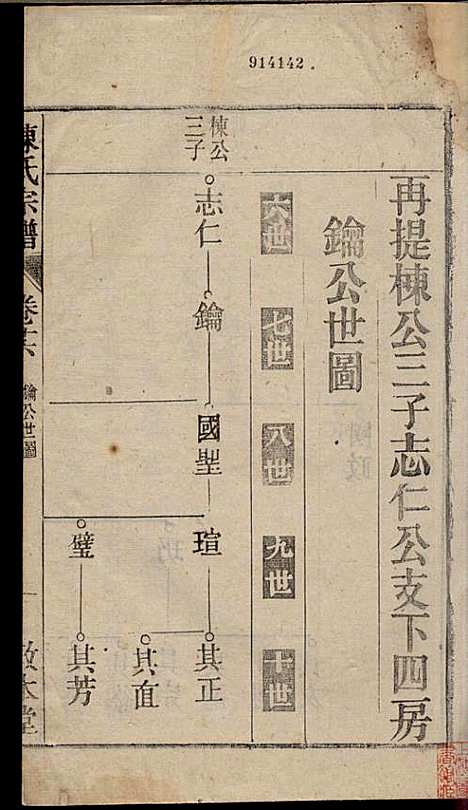 914142.
再提棟公三子志仁公支下四房
鑰公世圖
六世 七世 八世 九世 十世
棟公
三子
志仁 鑰 國聖 瑄 其正
其直
璧 其芳
陳氏宗譜 卷十六 鑰公世圖 敦本堂